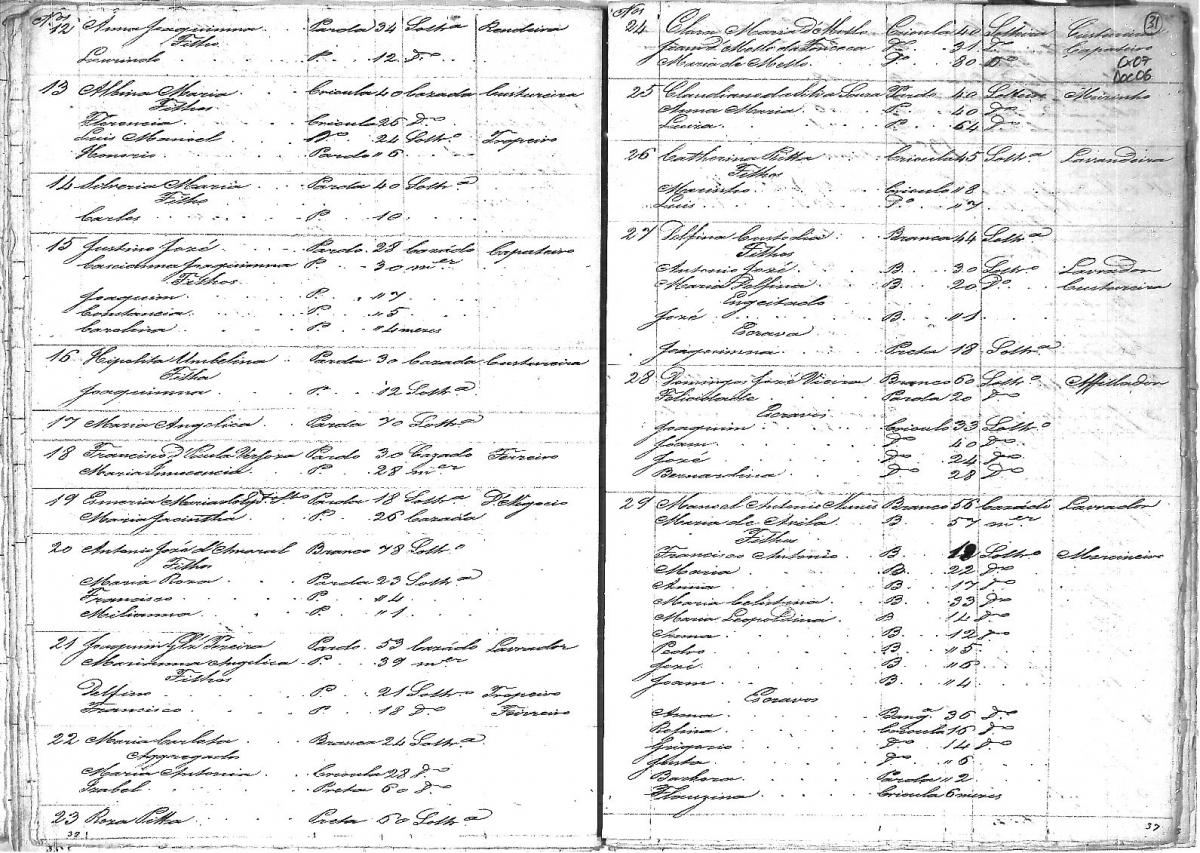 Nos
12 Anna Joaquinna Parda 34 Soltra Rendeira
Filho
Laurindo P. 12 Do
13 Albina Maria Crioula 40 Cazada Custureira
Filhos
Florencia Crioula 26 Do
Luis Manoel 24 Solto Tropeiro
Honorio Pardo " 6
14 Silveria Maria Parda 40 Solta
Filho
Carlos P. 10
15 Justino José Pardo 28 Cazado Capateiro
Joaquinna P. 30 mer
Filhos
Joaquim P. " 7
Constancia P. " 5
Carolina P. " 4 mezes
16 Hipolita Umbelina Parda 30 Cazada Custureira
Filha
Joaquinna P. 12 Solta
17 Maria Angelica Parda 70 Solta
18 Francisco Pardo 30 Cazado Ferreiro
Maria Innocencia P. 28 mer
19 Esmeria Maria Parda 18 Solta Do Negocio
Maria Jacintha P. 26 Cazada
20 Antonio José d'Amaral Branco 78 Solto
Filhos
Maria Roza Parda 23 Solta
Francisco P. " 4
Milianna P. " 1
21 Joaquim Pereira Pardo 53 Cazado Lavrador
Marianna Angelica P. 39 mer
Filhos
Delfino P. 21 Solto Tropeiro
Francisco P. 18 Do Ferreiro
22 Maria Carlota Branca 24 Solta
Aggregado
Maria Antonia Crioula 28 Do
Izabel Preta 60 Do
23 Roza Pitta Preta 50 Solta
Nos
31
Cx07
Doc06
24 Clara Maria d'Mello Crioula 40 Solteira Custureira
Joam d'Mello da Fonceca 31 Do Capateiro
Maria de Mello Do 80 Do
25 Claudiano da Silva Souza Pardo 40 Meirinho
Anna Maria P. 40 Do
Luiza P. 64 Do
26 Catherina Pitta Crioula 45 Solta Lavandeira
Filhos
Marinho Crioulo " 8
Luis Do " 7
27 Delfina Custodia Branca 44 Solta
Filhos
Antonio José B. 30 Solto Lavrador
Maria Delfina B. 20 Do Custureira
Engeitado
José B. " 1
Escrava
Joaquinna Preta 18 Solta
28 Domingos José Vieira Branco 60 Solto Affillador
Felicidade Parda 20 Do
Escravos
Joaquim Crioulo 33 Solto
Joam Do 40 Do
José Do 24 Do
Bernardina Do 28 Do
29 Manoel Antonio Branco 56 Cazado Lavrador
Maria de Avila B. 57 mer
Filhos
Francisco Antonio B. 18 Solto Marcineiro
Maria B. 22 Do
Anna B. 17 Do
Maria Celestina B. 33 Do
Maria Leopoldina B. 14 Do
B. 12 Do
Pedro B. " 5
José B. " 6
Joam B. " 4
Escravos
Anna Banga 36 Do
Rofina Crioula 16 Do
Grigorio Do 14 Do
Justa Do " 6
Barbora Parda " 2
Crioula 6 mezes